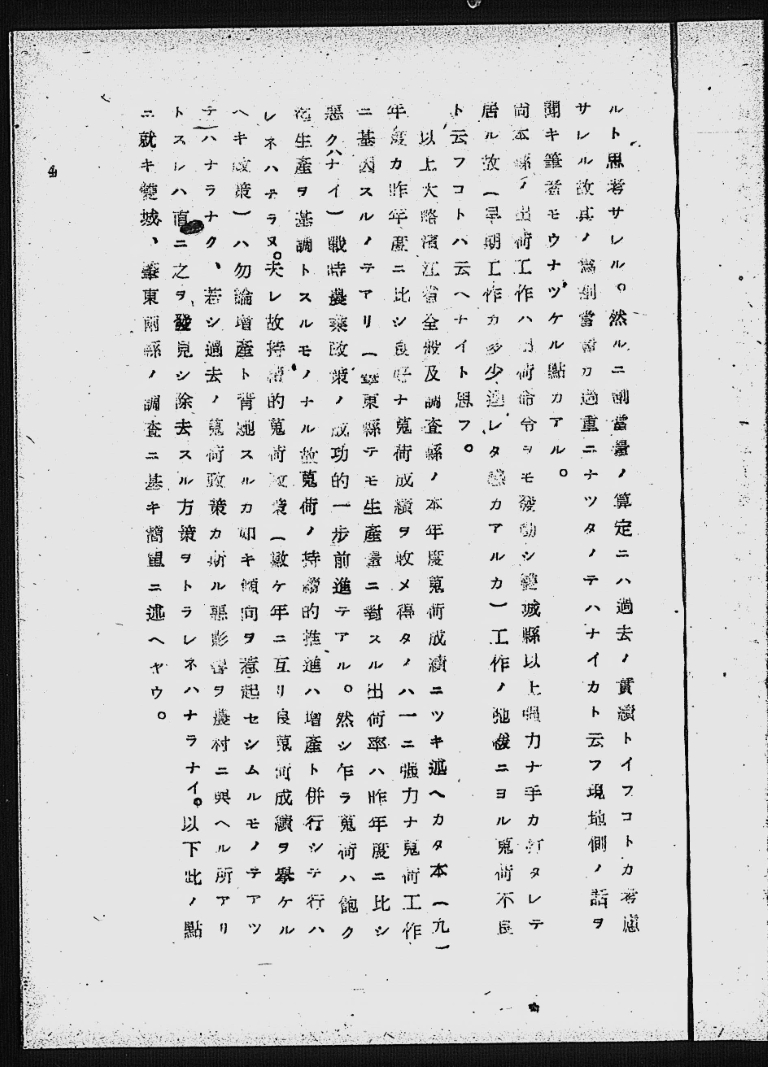 ルト思考サレル。然ルニ割當量ノ算定ニハ過去ノ實績トイフコトカ考慮
サレル故其ノ為割當量カ過重ニナツタノテハナイカト云フ現地側ノ話ヲ
聞キ筆者モウナツケル點カアル。
尚本縣ノ出荷工作ハ出荷命令ヲモ發動シ雙城縣以上強力ナ手カ打タレテ
居ル故(早期工作カ多少遅レタ感カアルカ)工作ノ弛緩ニヨル蒐荷不良
ト云フコトハ云ヘナイト思フ。
以上大略濱江省全般及調査縣ノ本年度蒐荷成績ニツキ述ヘカタ本(九)
年度カ昨年度ニ比シ良好ナ蒐荷成績ヲ收メ得タノハ一ニ強力ナ蒐荷工作
ニ基因スルノテアリ(肇東縣テモ生產量ニ對スル出荷率ハ昨年度ニ比シ
惡クハナイ)戰時農業政策ノ成功的一步前進テアル。然シ乍ラ蒐荷ハ飽ク
迄生產ヲ基調トスルモノナル故蒐荷ノ持續的推進ハ增產ト併行シテ行ハ
レネハナラヌ。夫レ故持續的蒐荷政策(數ケ年ニ互リ良蒐荷成績ヲ擧ケル
ヘキ政策)ハ勿論增產ト背馳スルカ如キ傾向ヲ惹起セシムルモノテアツ
テハナラナク、若シ過去ノ蒐荷政策カ斯ル惡影響ヲ農村ニ與ヘル所アリ
トスレハ直ニ之ヲ發見シ除去スル方策ヲトラレネハナラナイ。以下此ノ點
ニ就キ雙城、肇東兩縣ノ調査ニ基キ簡單ニ述ヘヤウ。